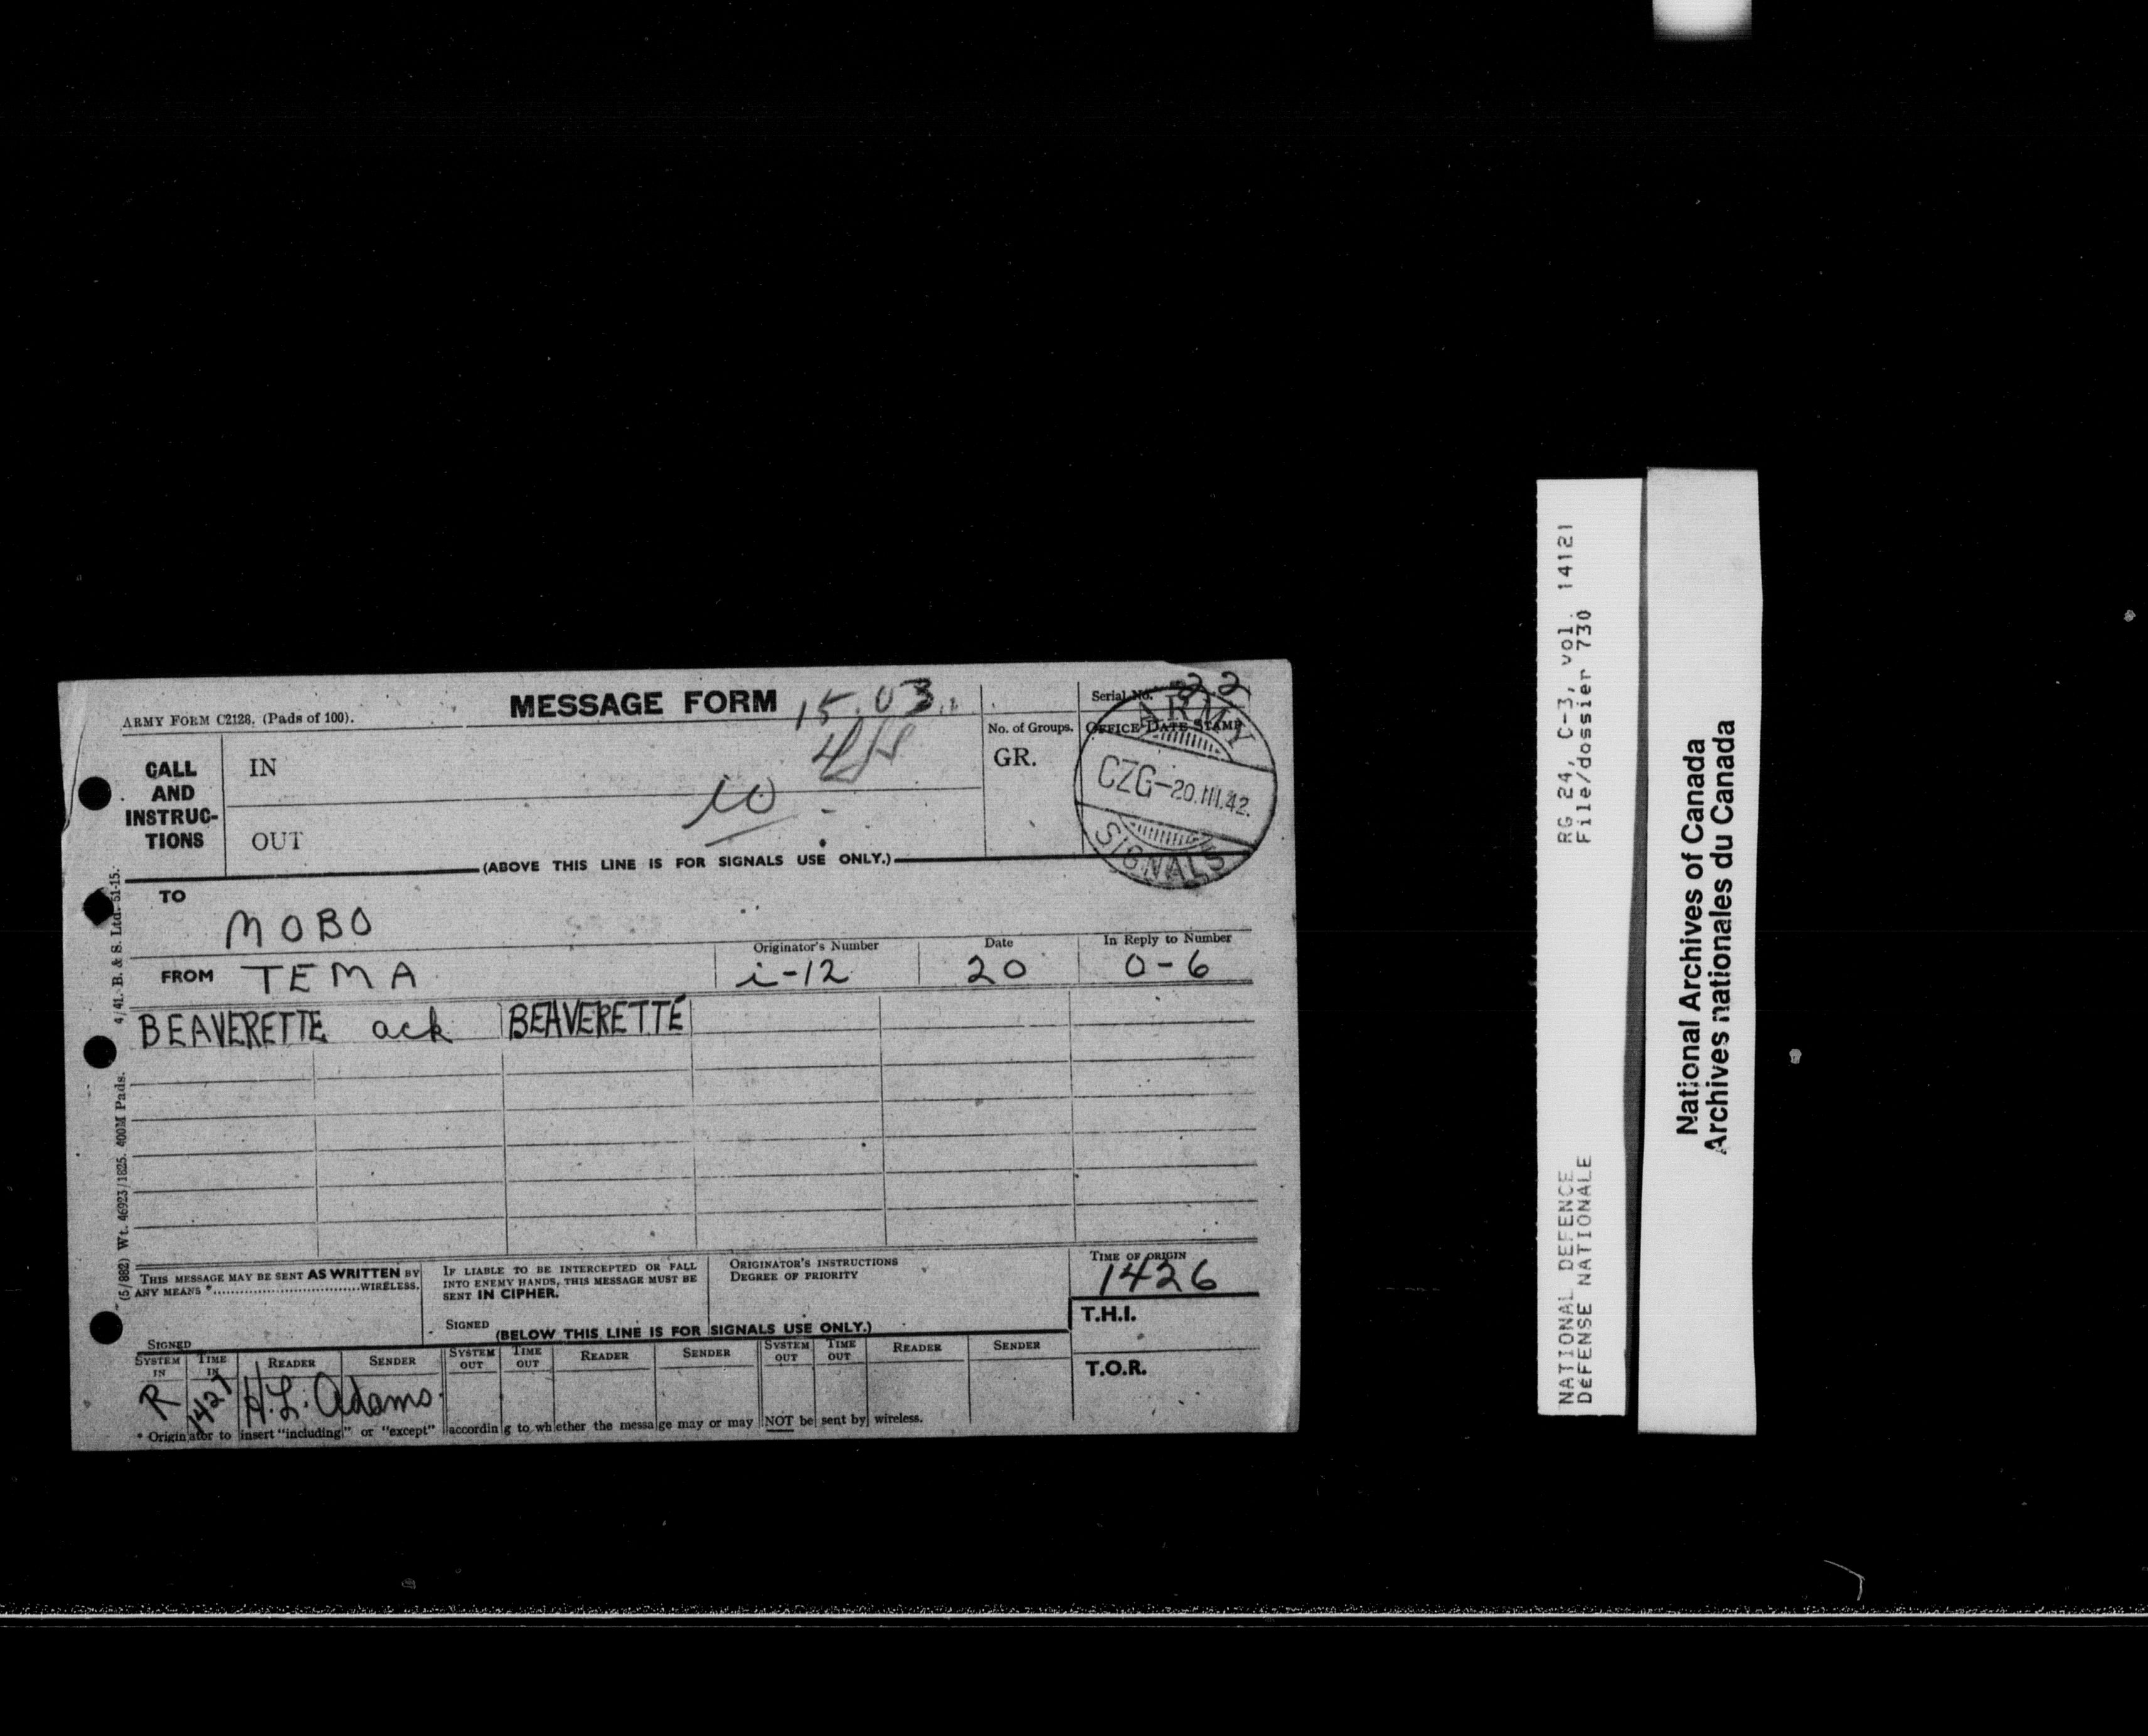 MESSAGE FORM 15.03.
Serial No. 22
ARMY FORM C2128. (Pads of 100).
No. of Groups. OFFICE DATE STAMP
GR.
ARMY
CZG-20.III.42.
SIGNALS
CALL
AND
INSTRUC-
TIONS
IN
OUT
(ABOVE THIS LINE IS FOR SIGNALS USE ONLY.)
TO
MOBO
Originator's Number Date In Reply to Number
FROM TEMA i-12 20 0-6
BEAVERETTE ack BEAVERETTE
THIS MESSAGE MAY BE SENT AS WRITTEN BY
ANY MEANS * WIRELESS.
SIGNED
IF LIABLE TO BE INTERCEPTED OR FALL
INTO ENEMY HANDS, THIS MESSAGE MUST BE
SENT IN CIPHER.
SIGNED
ORIGINATOR'S INSTRUCTIONS
DEGREE OF PRIORITY
TIME OF ORIGIN
1426
T.H.I.
T.O.R.
(BELOW THIS LINE IS FOR SIGNALS USE ONLY.)
SYSTEM IN TIME IN READER SENDER SYSTEM OUT TIME OUT READER SENDER SYSTEM OUT TIME OUT READER SENDER
R 1427 H.L. Adams.
* Originator to insert "including" or "except" according to whether the message may or may NOT be sent by wireless.
(5/882) Wt. 46923/1825. 400M Pads. 4/41. B. & S. Ltd. 51-15.
NATIONAL DEFENCE RG 24, C-3, vol. 14121
DéFENSE NATIONALE File/dossier 730
National Archives of Canada
Archives nationales du Canada